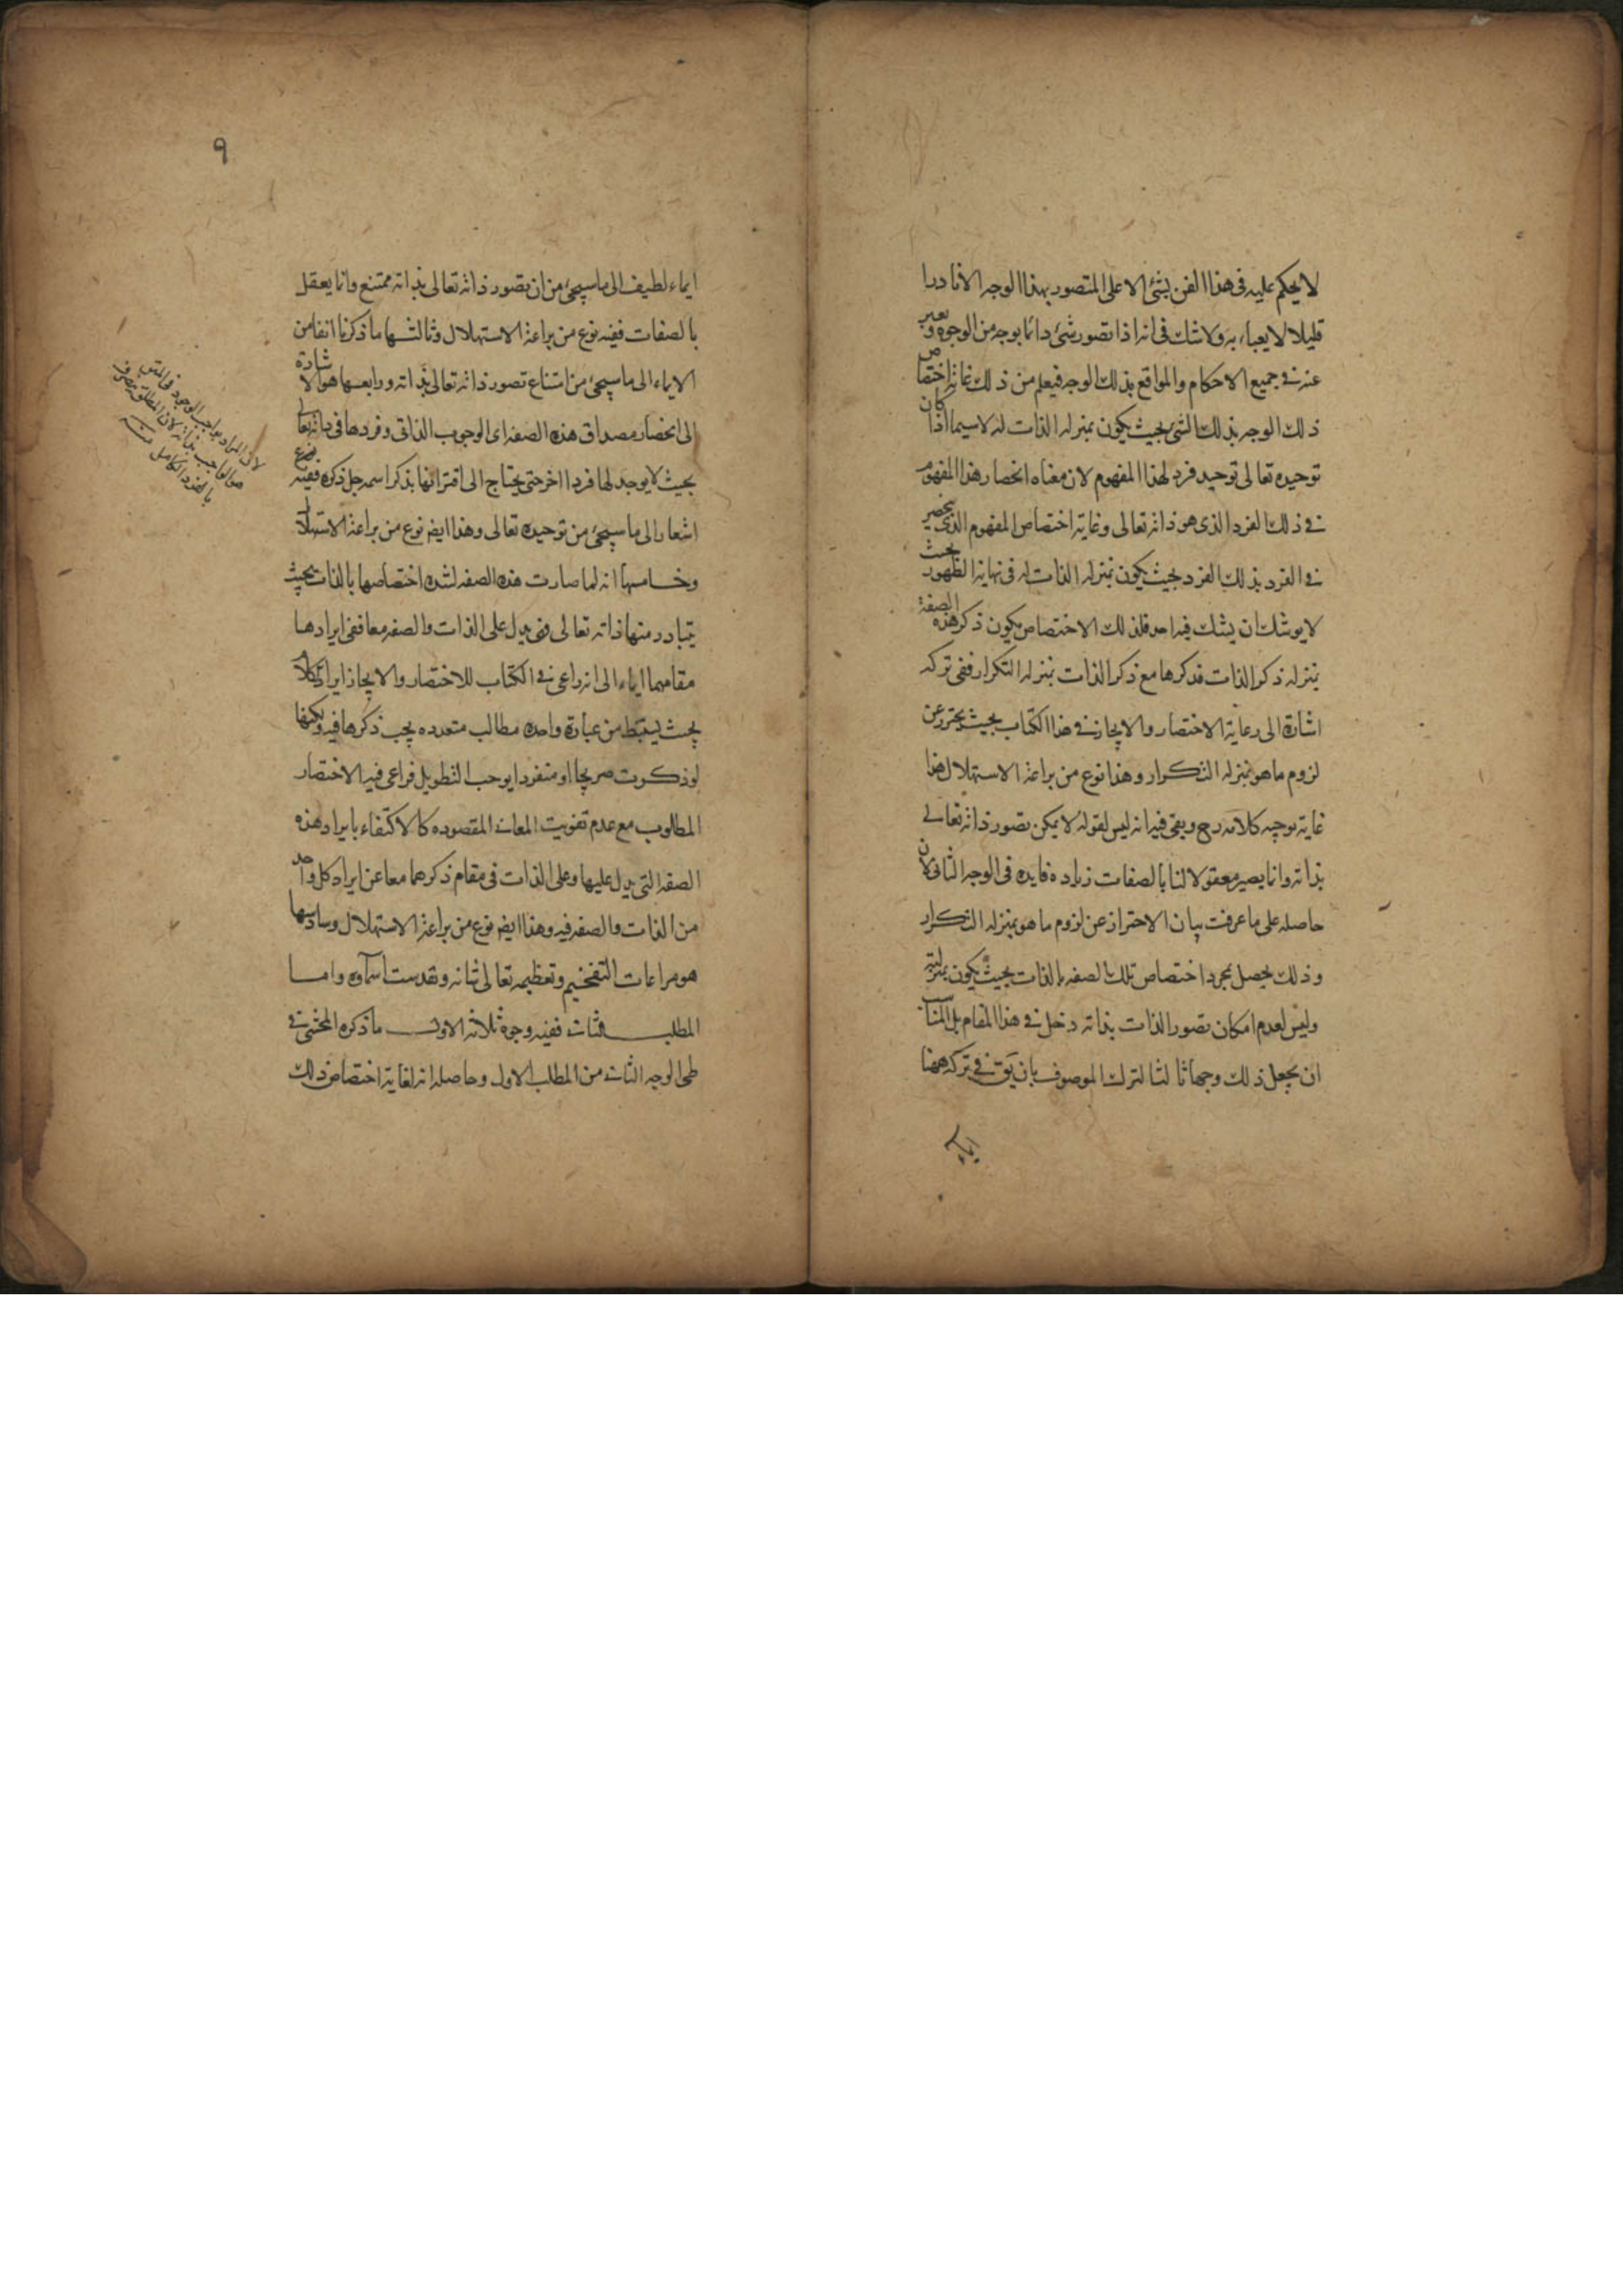 لا يحكم عليه فى هذا الفن بشئ الا على المتصور بهذا الوجه الا نادرا
قليلا لا يعباء به ولا شك فى انه اذا تصور شئ دائما بوجه من الوجوه و يعبر
عنه فى جميع الاحكام والمواقع بذلك الوجه فيعلم من ذلك غاية اختصاص
ذلك الوجه بذلك الشئ بحيث يكون بمنزلة الذات له لا سيما اذا كان
توحيده تعالى توحيد فرد لهذا المفهوم لان معناه انحصار هذا المفهوم
فى ذلك الفرد الذى هو ذاته تعالى وغاية اختصاص المفهوم الذى ينحصر
فى الفرد بذلك الفرد بحيث يكون بمنزلة الذات له فى نهاية الظهور بحيث
لا يوشك ان يشك فيه احد فلذلك الاختصاص يكون ذكر هذه الصفة
بمنزلة ذكر الذات فذكرها مع ذكر الذات بمنزلة التكرار ففى تركه
اشارة الى رعاية الاختصار والايجاز فى هذا الكتاب بحيث يحترز عن
لزوم ما هو بمنزلة التكرار وهذا نوع من براعة الاستهلال هذا
غاية توجيه كلامه رح وبقى فيه انه ليس لقوله لا يمكن تصور ذاته تعالى
بذاته وانما يصير معقولا لنا بالصفات زيادة فايدة فى الوجه الثانى لان
حاصله على ما عرفت بيان الاحتراز عن لزوم ما هو بمنزلة التكرار
وذلك يحصل بمجرد اختصاص تلك الصفة بالذات بحيث يكون بمنزلته
وليس لعدم امكان تصور الذات بذاته دخل فى هذا المقام بل المناسب
ان يجعل ذلك وجها ثالثا لترك الموصوف بان يق فى تركه ههنا
ايماء
٩
ايماء لطيف الى ما سيجئ من ان تصور ذاته تعالى بذاته ممتنع وانما يعقل
بالصفات ففيه نوع من براعة الاستهلال وثالثها ما ذكرنا انفا من
الايماء الى ما سيجئ من امتناع تصور ذاته تعالى بذاته ورابعها هو الاشارة
الى انحصار مصداق هذه الصفة اى الوجوب الذاتى وفردها فى ذاته تعالى
بحيث لا يوجد لها فردا اخر حتى يحتاج الى اقترانها بذكر اسمه جل ذكره ففيه نوع
اشعار الى ما سيجئ من توحيده تعالى وهذا ايض نوع من براعة الاستهلال
وخامسها انه لما صارت هذه الصفة لشدة اختصاصها بالذات بحيث
يتبادر منها ذاته تعالى فهى يدل على الذات والصفة معا ففى ايرادها
مقامهما ايماء الى انه راعى فى الكتاب للاختصار والايجاز ايراد كلام
بحيث يستنبط من عبارة واحدة مطالب متعدده يجب ذكرها فيه ولكنها
لو ذكرت صريحا او منفردا يوجب التطويل فراعى فيه الاختصار
المطلوب مع عدم تفويت المعانى المقصوده كالاكتفاء بايراد هذه
الصفة التى يدل عليها وعلى الذات فى مقام ذكرهما معا عن ايراد كل واحد
من الذات والصفة فيه وهذا ايض نوع من براعة الاستهلال وسادسها
هو مراعات التفخيم وتعظيمه تعالى شانه وتقدست اسماؤه واما
المطلب الثانى ففيه وجوه ثلاثة الاول ما ذكره المحشى فى
طى الوجه الثانى من المطلب الاول وحاصله انه لغاية اختصاص ذلك
لان المراد بواجب الوجود
هو الواجب بذاته لان المطلق ينصرف
بالفرد الكامل منه